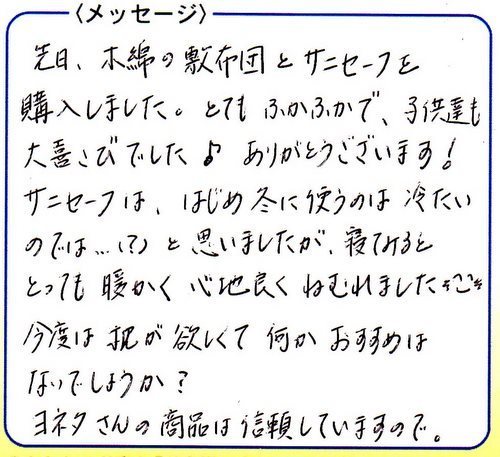 〈メッセージ〉
先日、木綿の敷布団とサニセーフを
購入しました。とても ふかふかで、子供達も
大喜こびでした♪ ありがとうございます!
サニセーフは、はじめ冬に使うのは 冷たい
のでは…(?)と思いましたが、寝てみると
とっても 暖かく 心地良く ねむれました
今度は 枕が 欲しくて 何か おすすめは
ないでしょうか?
ヨネタさんの商品は信頼していますので。